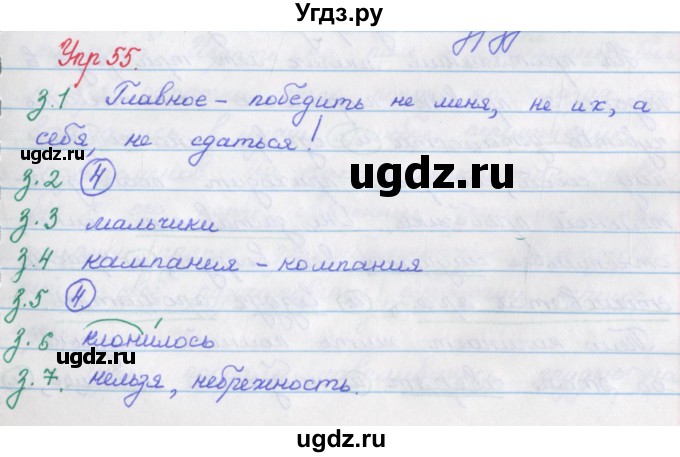 Угдз.ру
Упр 55.
з.1 Главное – победить не меня, не их, а
себя, не сдаться!
ugdz.ru
ugdz.ru
ugdz.ru
з.2 4
з.3 мальчики
з.4 кампания – компания
з.5 4.
з.6 клонилось
ugdz.ru
ugdz.ru
з.7. нельзя, небрежность.
ugdz.ru